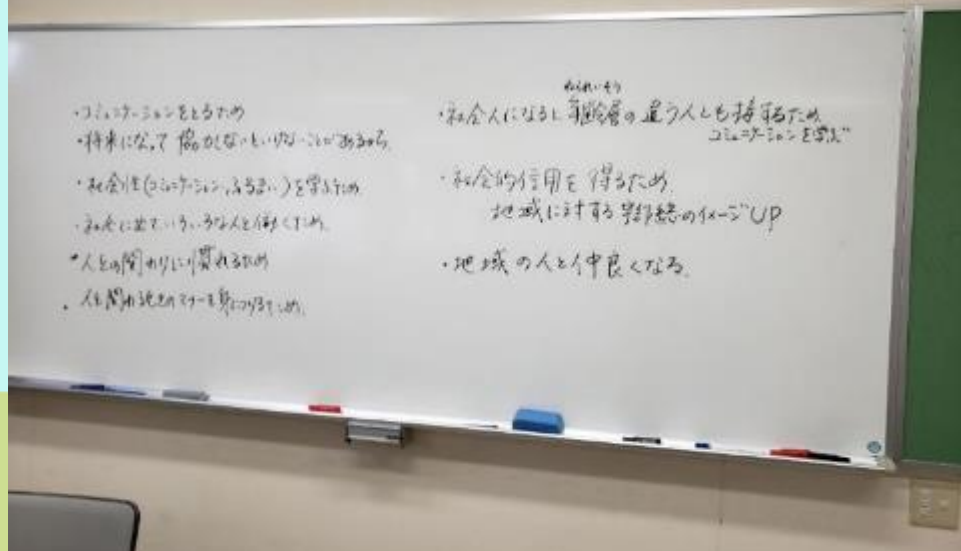 ・コミュニケーションをとるため
・将来になって協力しないといけないことがあるから
・社会性(コミュニケーション、ふるまい)を学ぶため
・社会に出ていろいろな人と働くため
・人との関わりに慣れるため
・人と関わる のマナーを身につけるため
ねんれいそう
・社会人になると年齢層の違う人とも接するため
コミュニケーションを学ぶ
・社会的信用を得るため
地域に対する のイメージUP
・地域の人と仲良くなる